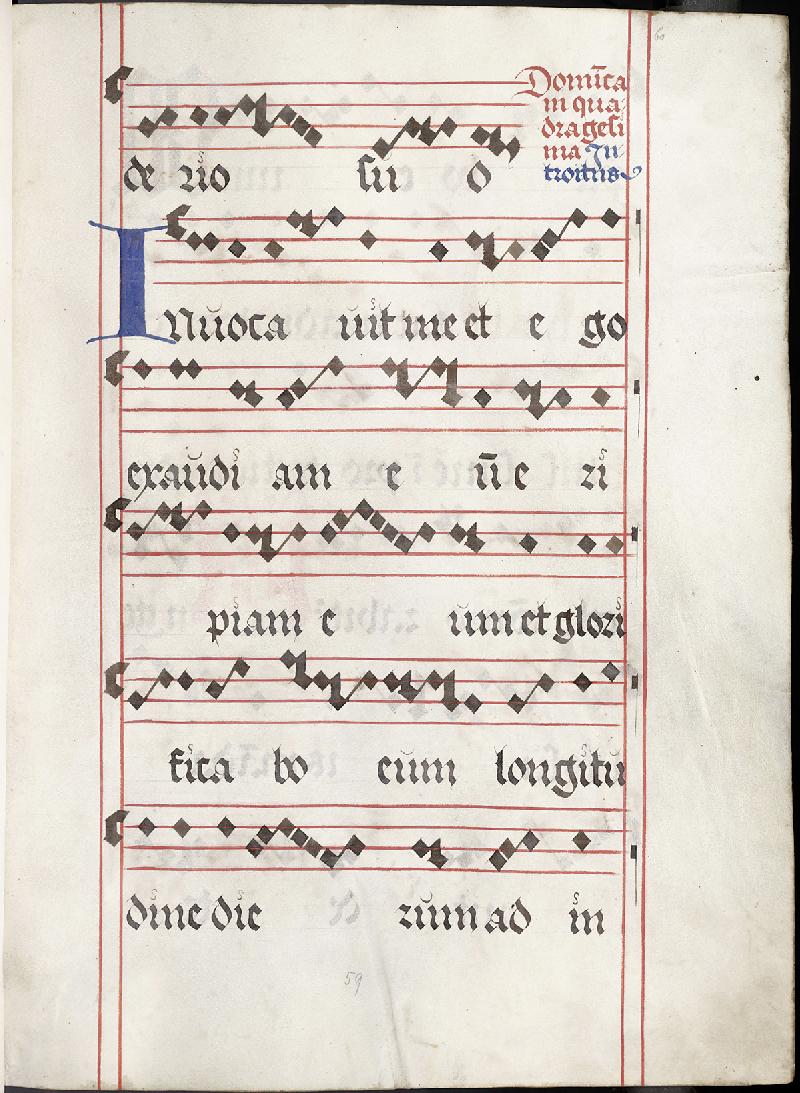 Domīca
in qua
dragesi
ma In
troitus
de rio suo
INuoca uit me et e go
exaudi am e ūe zi
piam e um et glori
fica bo eum longitu
dine die rum ad in
59
60